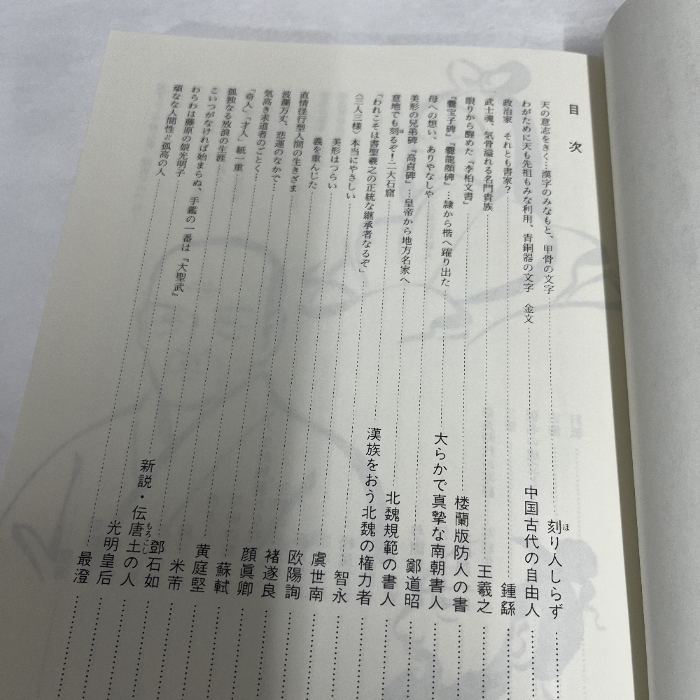 目次
天の意志をきく…漢字のみなもと、甲骨の文字………刻り人しらず
ほ
わがために天も先祖もみな利用、青銅器の文字　金文………中国古代の自由人
政治家　それとも書家？………鍾繇
武士魂、気骨溢れる名門貴族………王羲之
眠りから醒めた『李柏文書』………楼蘭版防人の書
『爨宝子碑』『爨龍顔碑』…隷から楷へ躍り出た………大らかで真摯な南朝書人
母への想い、ありやなしや………鄭道昭
美形の兄弟碑『高貞碑』…皇帝から地方名家へ………北魏規範の書人
意地でも刻るぞ！二大石窟………漢族をおう北魏の権力者
ほ
「われこそは書聖羲之の正統な継承者なるぞ」………智永
〈三人三様〉本当にやさしい………虞世南
美形はつらい………欧陽詢
義を重んじた………褚遂良
直情径行型人間の生きざま………顔眞卿
波瀾万丈、悲運のなかで………蘇軾
気高き求道者のごとく………黄庭堅
「奇人」「才人」紙一重………米芾
孤独なる放浪の生涯………鄧石如
こいつがなければ始まらぬ、手鑑の一番は『大聖武』………新説・伝唐土の人
もろこし
わらわは藤原の娘光明子………光明皇后
頑なな人間性＝孤高の人………最澄